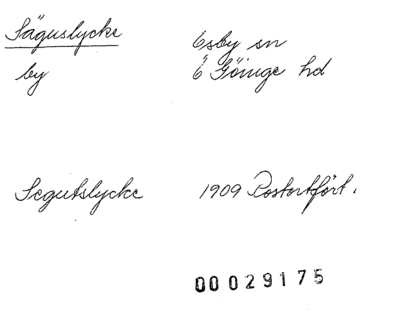 Säguslycke Osby sn
by Ö Göinge hd
Segutslycke 1909 Postortfört.
00029175